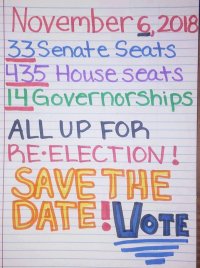 November 6, 2018
33 Senate Seats
435 House seats
14 Governorships
ALL UP FOR
RE-ELECTION!
SAVE THE
DATE! VOTE